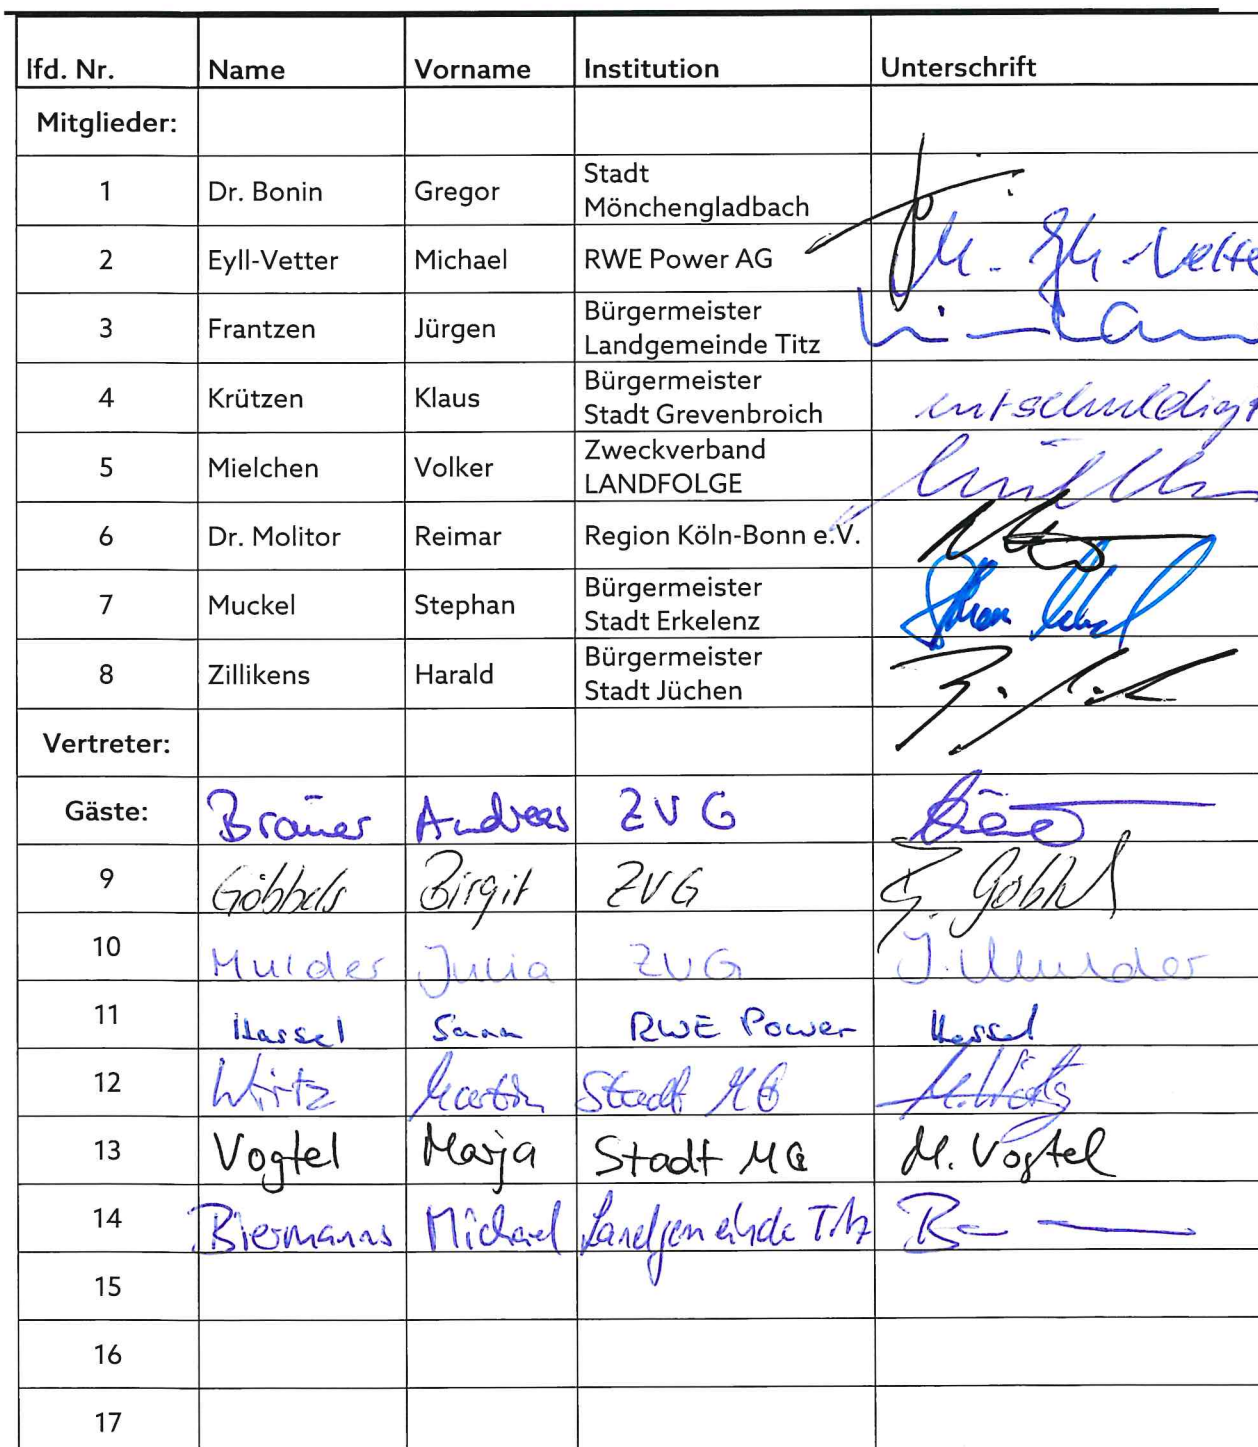 lfd. Nr. Name Vorname Institution Unterschrift
Mitglieder:
1 Dr. Bonin Gregor Stadt
Mönchengladbach
2 Eyll-Vetter Michael RWE Power AG
3 Frantzen Jürgen Bürgermeister
Landgemeinde Titz
4 Krützen Klaus Bürgermeister
Stadt Grevenbroich entschuldigt
5 Mielchen Volker Zweckverband
LANDFOLGE
6 Dr. Molitor Reimar Region Köln-Bonn e.V.
7 Muckel Stephan Bürgermeister
Stadt Erkelenz
8 Zillikens Harald Bürgermeister
Stadt Jüchen
Vertreter:
Gäste: Bräuer Andreas ZVG
9 Göbbels Birgit ZVG
10 Mulder Julia ZVG J. Mulder
11 Hassel RWE Power Hassel
12 Wirtz Martin Stadt MG M. Wirtz
13 Vogtel Marja Stadt MG M. Vogtel
14 Biermanns Michael Landgemeinde Titz
15
16
17